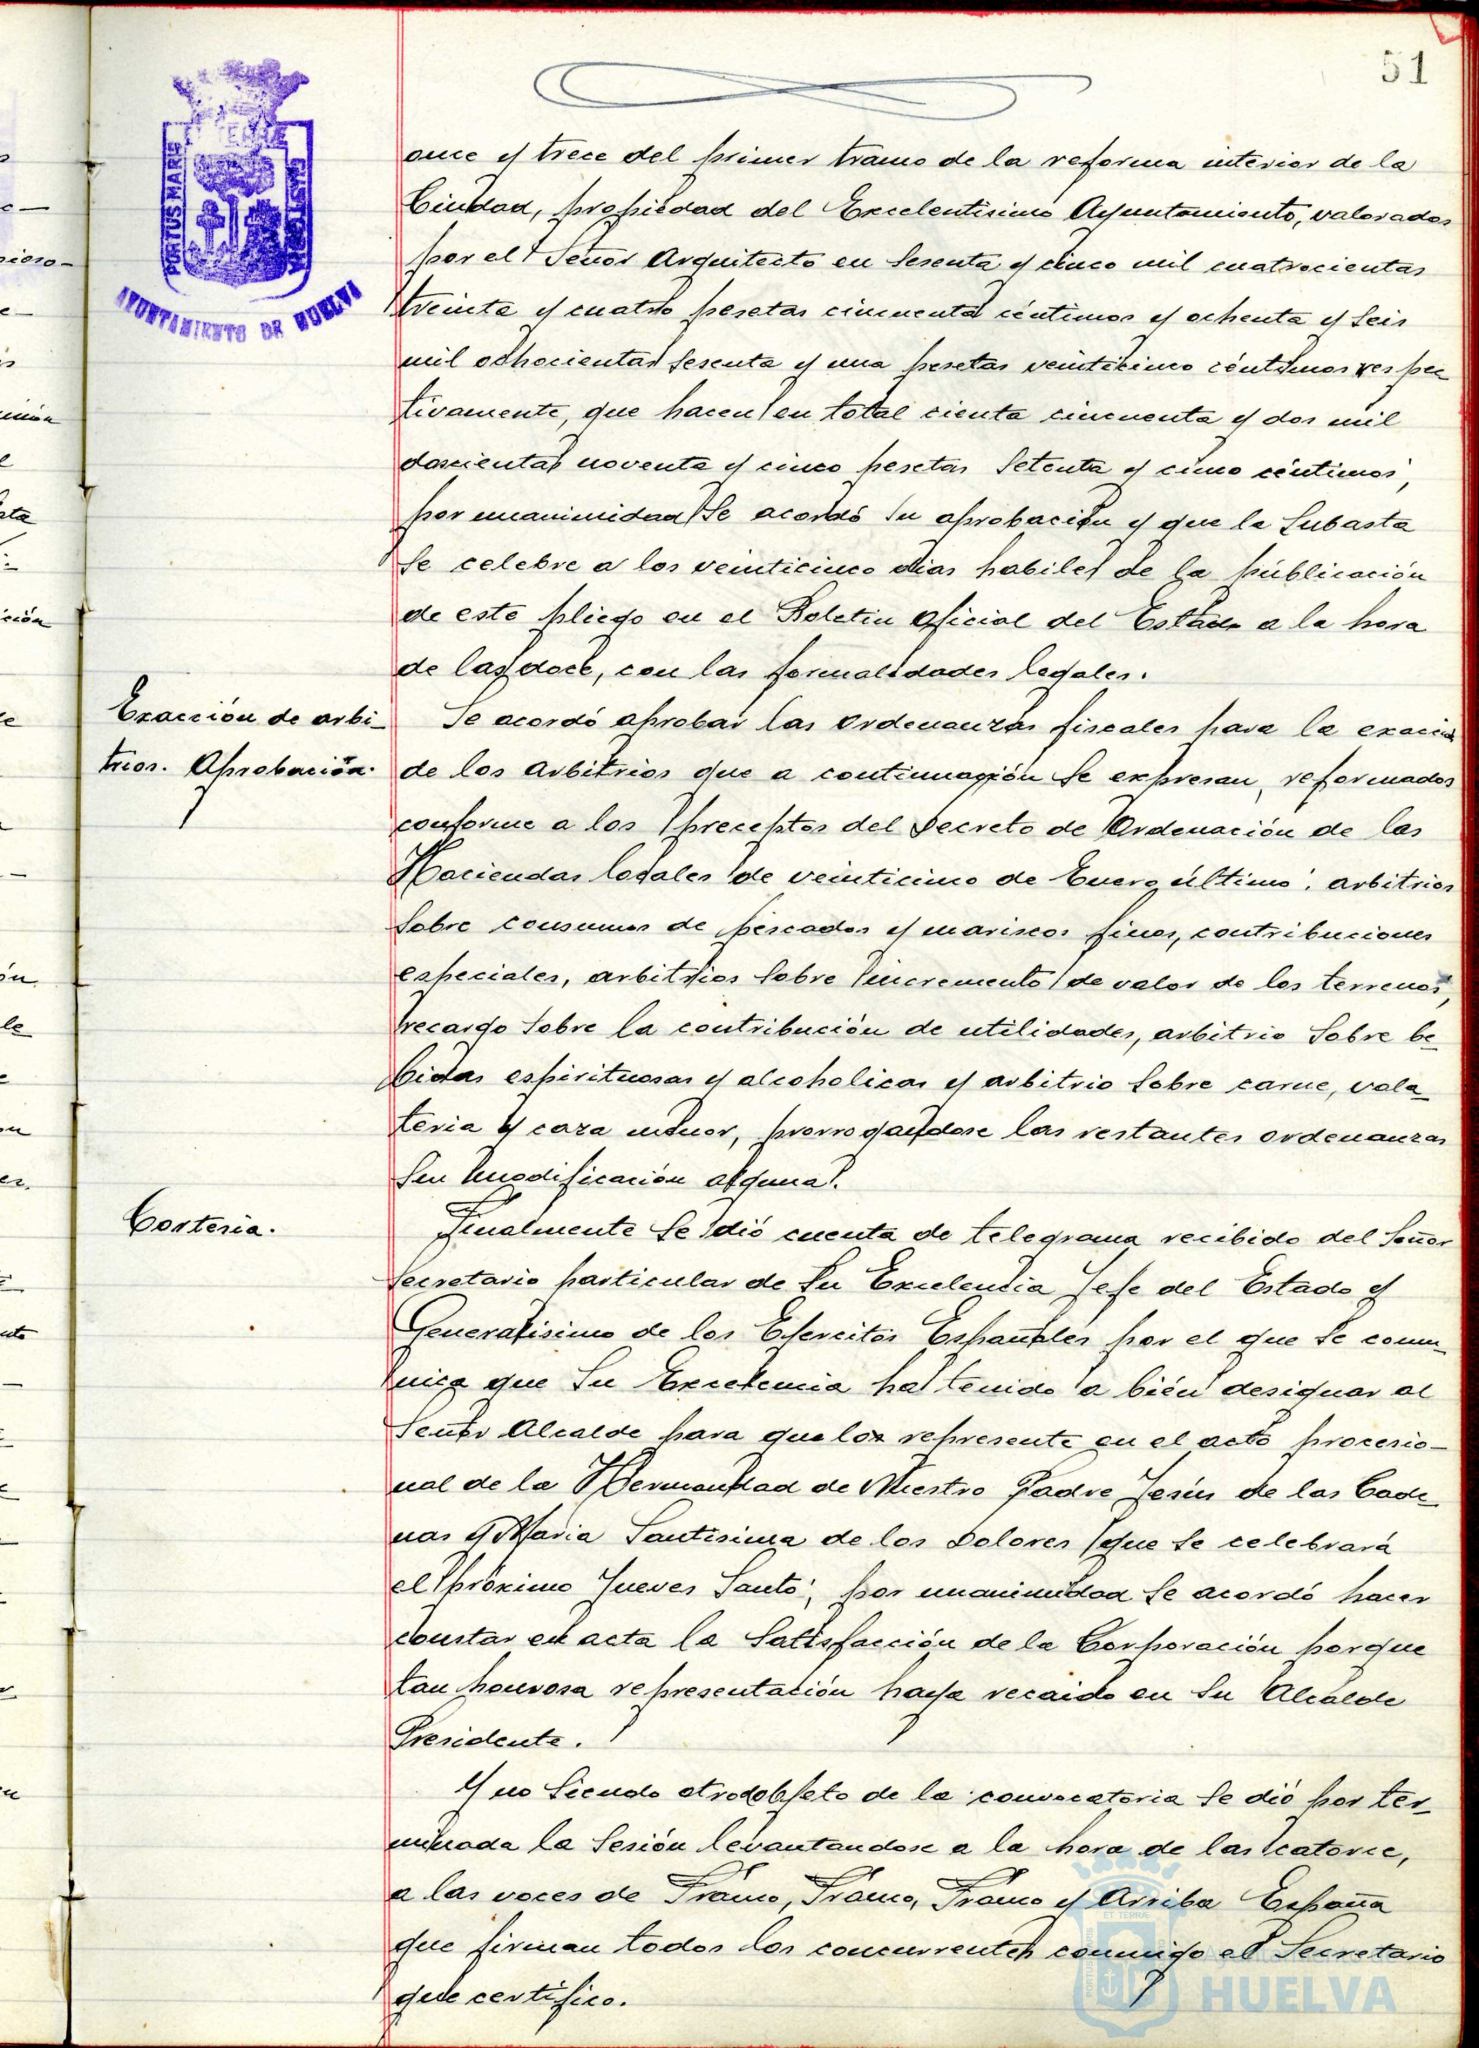 51
PORTUS MARIS
ET TERRAE
CUSTODIA
AYUNTAMIENTO DE HUELVA
once y trece del primer tramo de la reforma interior de la
Ciudad, propiedad del Excelentisimo Ayuntamiento, valorados
por el Señor Arquitecto en sesenta y cinco mil cuatrocientas
treinta y cuatro pesetas cincuenta céntimos y ochenta y seis
mil ochocientas sesenta y una pesetas veinticinco céntimos respec
tivamente, que hacen en total cienta cincuenta y dos mil
doscientas noventa y cinco pesetas setenta y cinco céntimos,
por unanimidad se acordó su aprobación y que la subasta
se celebre a los veinticinco dias habiles de la públicación
de este pliego en el Boletin oficial del Estado a la hora
de las doce, con las formalidades legales.
Exacción de arbi-
trios. Aprobación.
Se acordó aprobar las ordenanzas fiscales para la exacción
de los arbitrios que a continuación se expresan, reformados
conforme a los preceptos del Decreto de Ordenación de las
Haciendas locales de veinticinco de Enero último: arbitrios
sobre consumos de pescados y mariscos finos, contribuciones
especiales, arbitrios sobre incremento de valor de los terrenos,
recargo sobre la contribución de utilidades, arbitrio sobre be-
bidas espirituosas y alcoholicas y arbitrio sobre carne, vola-
teria y caza menor, prorrogandose las restantes ordenanzas
sin modificación alguna.
Cortesia.
Finalmente se dió cuenta de telegrama recibido del Señor
Secretario particular de Su Excelencia Jefe del Estado y
Generalisimo de los Ejercitos Españoles por el que se comu-
nica que Su Excelencia ha tenido a bién designar al
Señor Alcalde para que lo represente en el acto procesio-
nal de la Hermandad de Nuestro Padre Jesús de las Cade-
nas y Maria Santisima de los Dolores que se celebrará
el próximo Jueves Santo; por unanimidad se acordó hacer
constar en acta la satisfacción de la Corporación porque
tan honrosa representación haya recaido en su Alcalde
Presidente.
Y no siendo otro objeto de la convocatoria se dió por ter-
minada la sesión levantandose a la hora de las catorce,
a las voces de Franco, Franco, Franco y Arriba España
que firman todos los concurrentes conmigo el Secretario
que certifico.
Ayuntamiento de
HUELVA